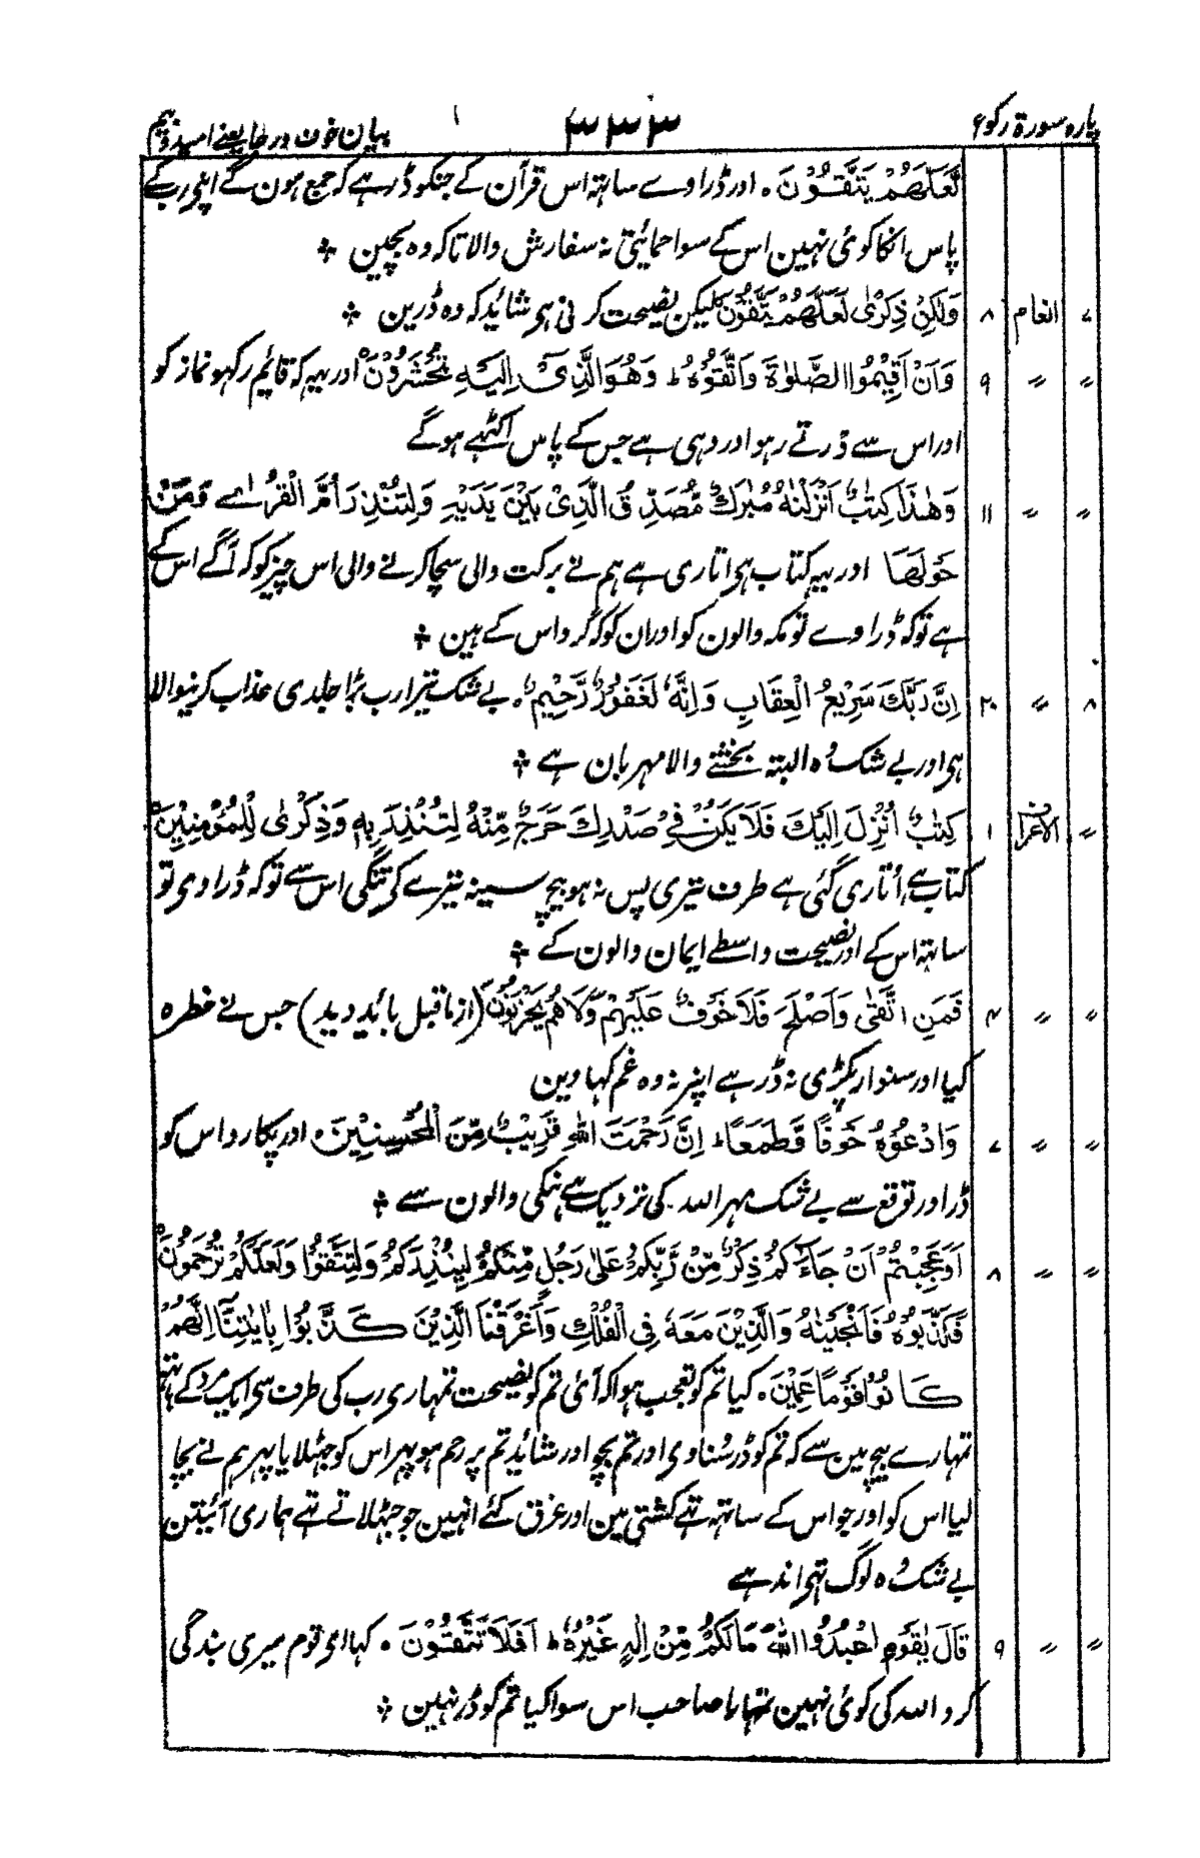 پارہ سورۃ رکوع ۳۳۳ بیان خوف ورجا یعنے امید و بیم
لَعَلَّهُمْ يَتَّقُوْنَ ۔ اور ڈراوے ساتھ اس قرآن کے جنکو ڈر ہے کہ جمع ہون گے اپنے رب کے
پاس انکا کوئی نہین اس کے سوا حمائیتی نہ سفارش والا تاکہ وہ بچین
۷ انعام ۸ وَلٰكِنْ ذِكْرٰى لَعَلَّهُمْ يَتَّقُوْنَ لیکن نصیحت کرنی ہی شائد کہ وہ ڈرین
〃 〃 ۹ وَاَنْ اَقِيْمُوا الصَّلٰوةَ وَاتَّقُوْهُ ط وَهُوَ الَّذِىْ اِلَيْهِ تُحْشَرُوْنَ اور یہہ کہ قائم رکہو نماز کو
اور اس سے ڈرتے رہو اور وہی ہے جس کے پاس اکٹہے ہوگے
〃 〃 ۱۱ وَهٰذَا كِتٰبٌ اَنْزَلْنٰهُ مُبٰرَكٌ مُّصَدِّقُ الَّذِىْ بَيْنَ يَدَيْهِ وَلِتُنْذِرَ اُمَّ الْقُرٰى وَمَنْ
حَوْلَهَا اور یہہ کتاب ہی اتاری ہے ہم نے برکت والی سچا کرنے والی اس چیز کو کہ آگے اس کے
ہے تو کہ ڈراوے تو مکہ والون کو اور ان کو کہ گرد اس کے ہین
۸ 〃 ۲۰ اِنَّ رَبَّكَ سَرِيْعُ الْعِقَابِ وَاِنَّهٗ لَغَفُوْرٌ رَّحِيْمٌ ۔ بے شک تیرا رب بڑا جلدی عذاب کرنیوالا
ہی اور بے شک وہ البتہ بخشنے والا مہربان ہے
〃 الاعراف ۱ كِتٰبٌ اُنْزِلَ اِلَيْكَ فَلَا يَكُنْ فِىْ صَدْرِكَ حَرَجٌ مِّنْهُ لِتُنْذِرَ بِهٖ وَذِكْرٰى لِلْمُؤْمِنِيْنَ
کتاب ہے اُتاری گئی ہے طرف تیری پس نہ ہو بیچ سینہ تیرے کی تنگی اس سے تو کہ ڈراوی تو
ساتہہ اس کے اور نصیحت واسطے ایمان والون کے
〃 〃 ۴ فَمَنِ اتَّقٰى وَاَصْلَحَ فَلَا خَوْفٌ عَلَيْهِمْ وَلَا هُمْ يَحْزَنُوْنَ (از ما قبل بائد دید) جس نے خطرہ
کیا اور سنوار پکڑی نہ ڈر ہے اپنر نہ وہ غم کہاوین
〃 〃 ۷ وَادْعُوْهُ خَوْفًا وَّطَمَعًا ط اِنَّ رَحْمَتَ اللّٰهِ قَرِيْبٌ مِّنَ الْمُحْسِنِيْنَ ۔ اور پکارو اس کو
ڈر اور توقع سے بے شک مہر اللہ کی نزدیک ہے نیکی والون سے
〃 〃 ۸ اَوَعَجِبْتُمْ اَنْ جَآءَكُمْ ذِكْرٌ مِّنْ رَّبِّكُمْ عَلٰى رَجُلٍ مِّنْكُمْ لِيُنْذِرَكُمْ وَلِتَتَّقُوْا وَلَعَلَّكُمْ تُرْحَمُوْنَ
فَكَذَّبُوْهُ فَاَنْجَيْنٰهُ وَالَّذِيْنَ مَعَهٗ فِى الْفُلْكِ وَاَغْرَقْنَا الَّذِيْنَ كَذَّبُوْا بِاٰيٰتِنَا اِنَّهُمْ
كَانُوْا قَوْمًا عَمِيْنَ ۔ کیا تم کو تعجب ہوا کہ آئی تم کو نصیحت تمہاری رب کی طرف سی ایک مرد کے ہاتہہ
تمہارے بیچ مین سے کہ تم کو ڈر سُناوی اور تم بچو اور شائد تم پر رحم ہو پہر اس کو جہٹلایا پہر ہم نے بچا
لیا اس کو اور جو اس کے ساتہہ تہے کشتی مین اور غرق کئے انہین جو جہٹلاتے تہے ہماری آئیتن
بے شک وہ لوگ تہی اندہے
〃 〃 ۹ قَالَ يٰقَوْمِ اعْبُدُوا اللّٰهَ مَا لَكُمْ مِّنْ اِلٰهٍ غَيْرُهٗ ط اَفَلَا تَتَّقُوْنَ ۔ کہا ای قوم میری بندگی
کرو اللہ کی کوئی نہین تمہارا صاحب اس سوا کیا تم کو ڈر نہین